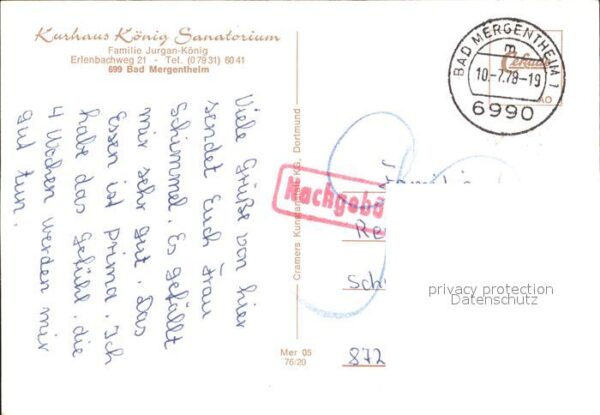 Kurhaus König Sanatorium
Familie Jurgan-König
Erlenbachweg 21 - Tel. (07931) 6041
699 Bad Mergentheim
Viele Grüße von hier
sendet Euch Frau
Schimmel. Es gefällt
mir sehr gut. Das
Essen ist prima. Ich
habe das Gefühl, die
4 Wochen werden mir
gut tun.
Mer 05
76/20
Cramers Kunstanstalt KG, Dortmund
BAD MERGENTHEIM 1
m
10.-7.78-19
6990
Cekade
Nachgebü
Re
Sch
872
privacy protection
Datenschutz